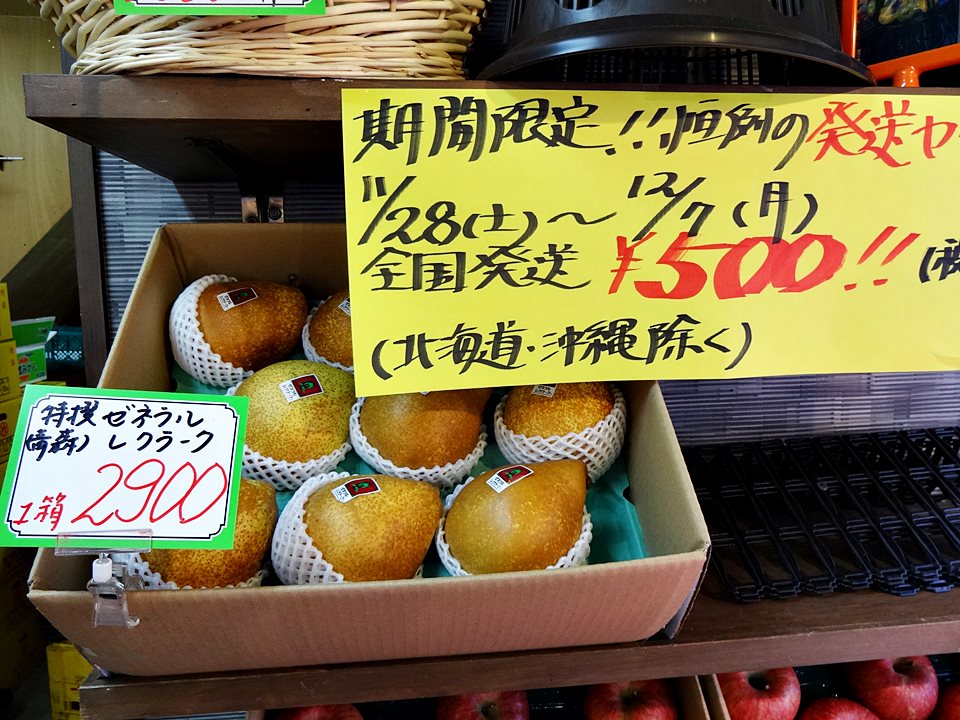 期間限定!!恒例の発送ヤ
11/28(土)〜12/7(月)
全国発送 ¥500!!(税
(北海道・沖縄除く)
特撰 ゼネラル
(青森) レクラーク
1箱 2900